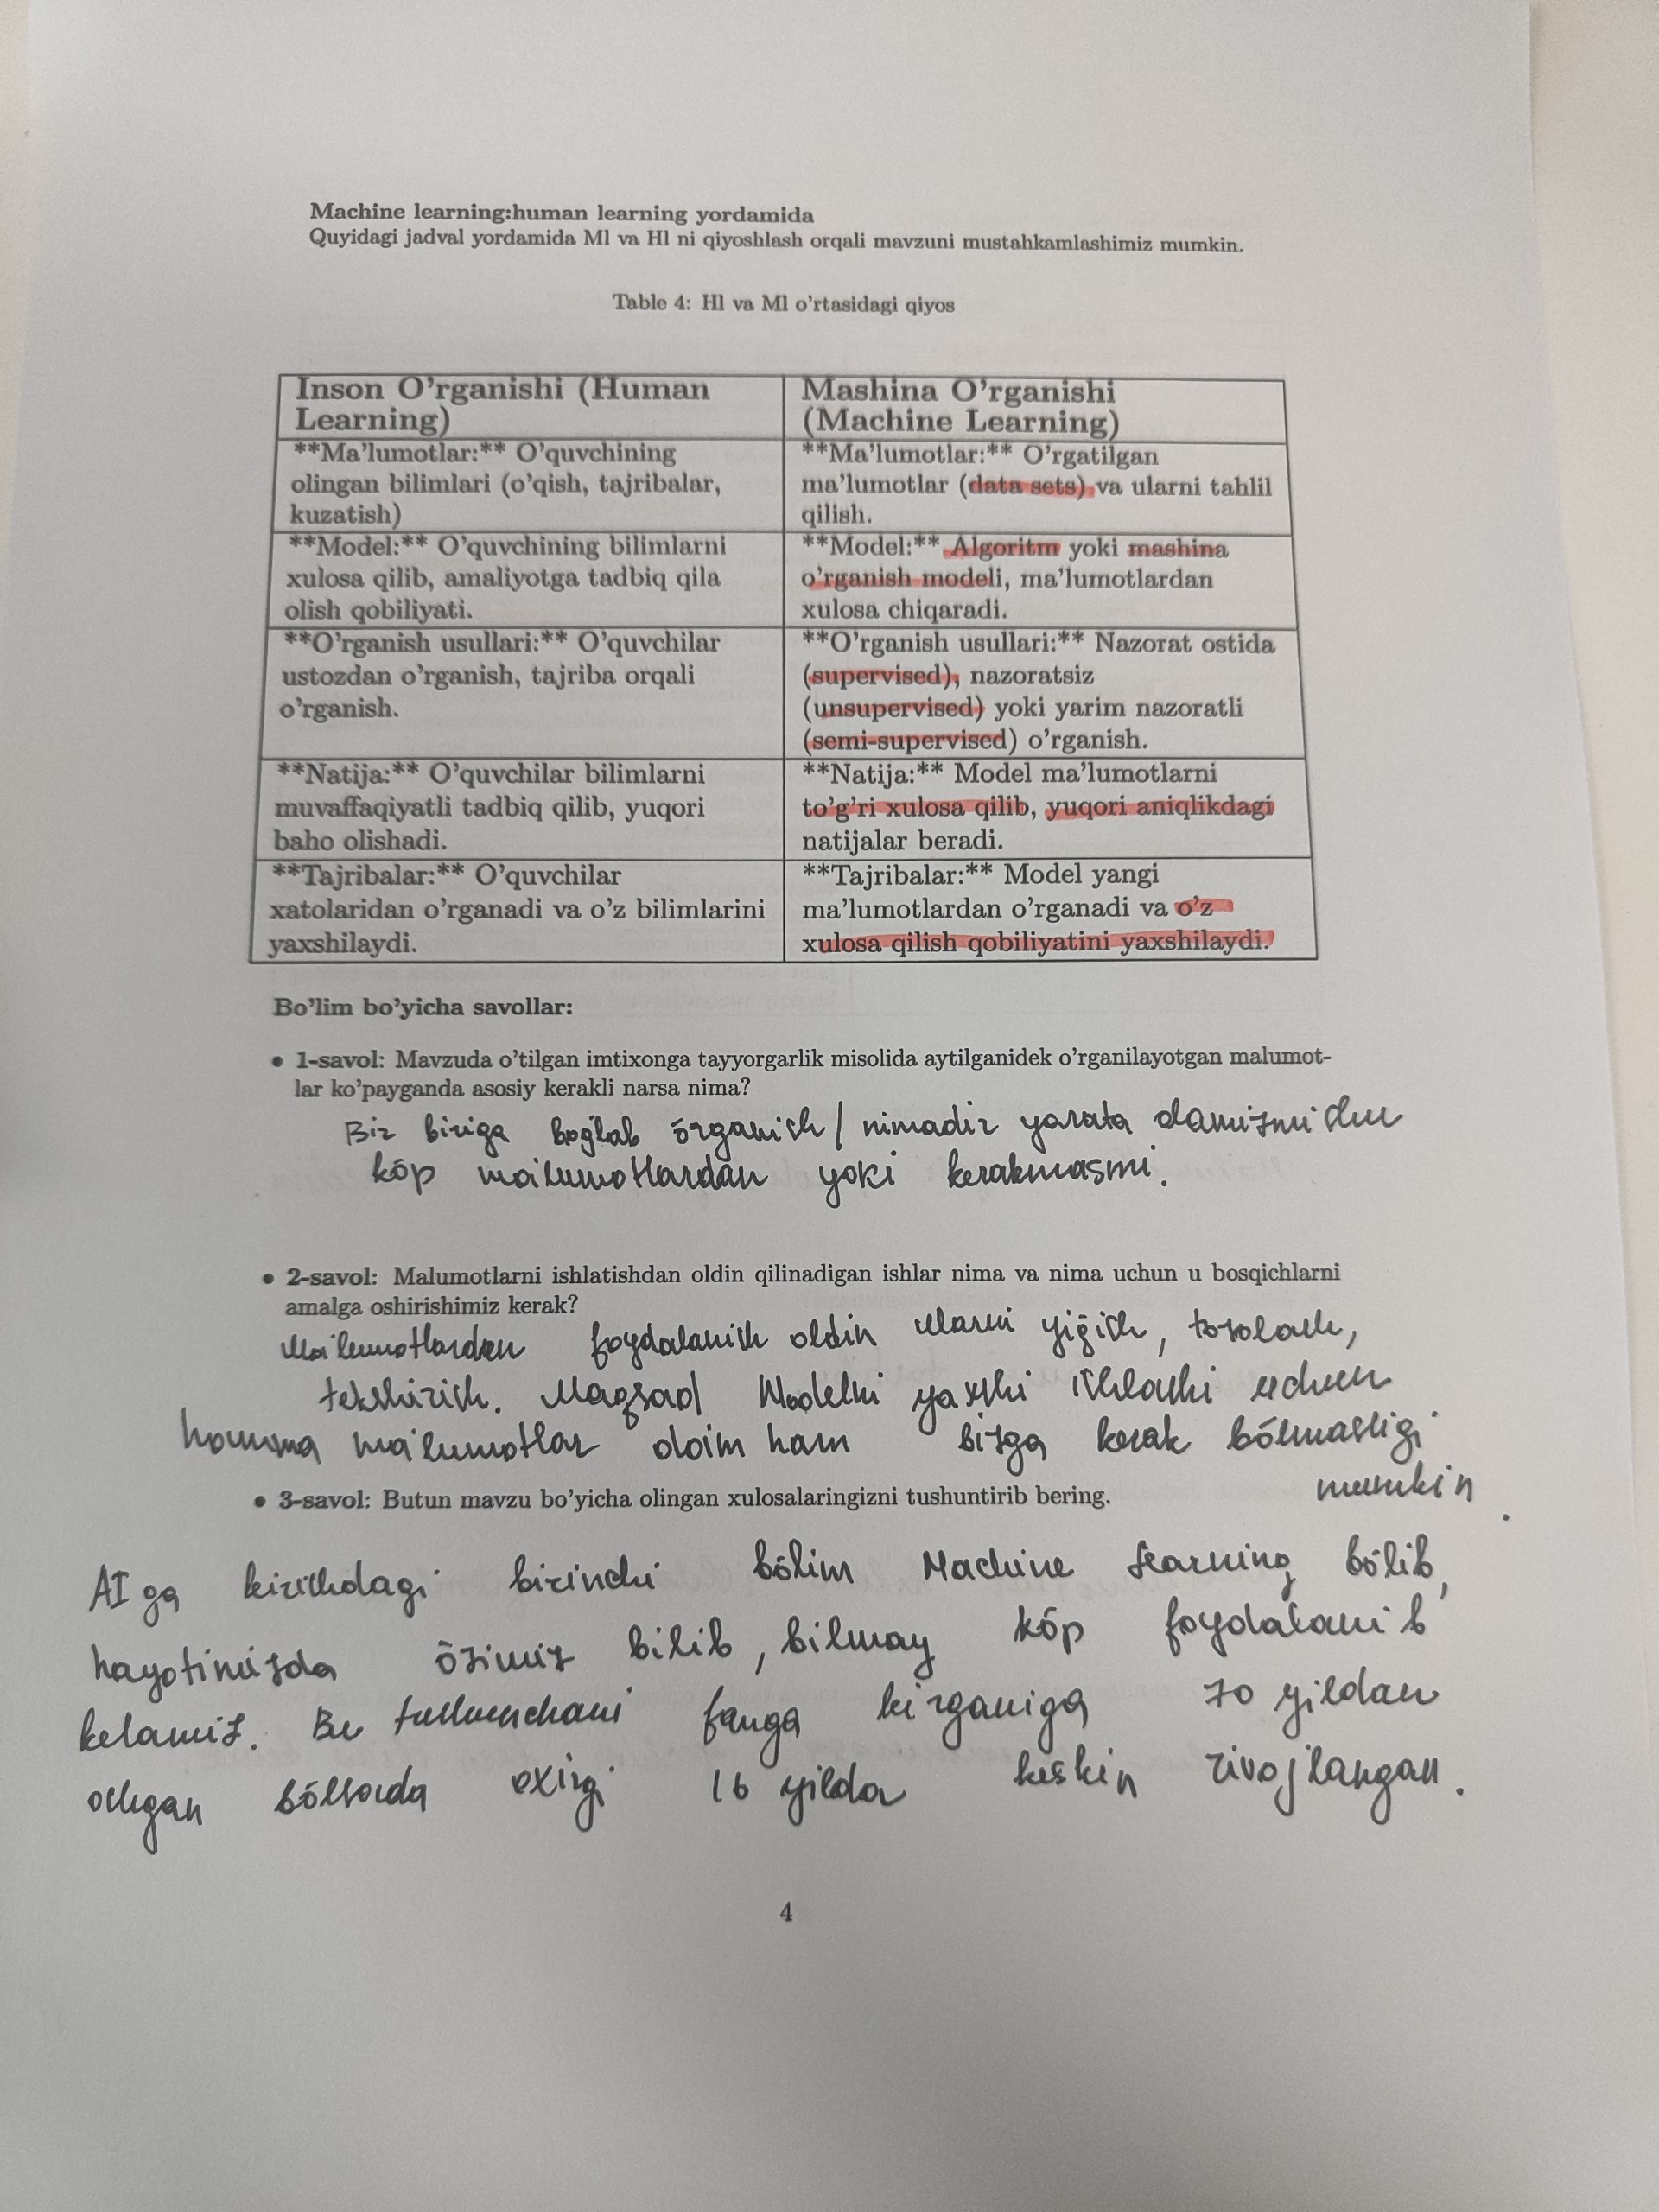 Machine learning:human learning yordamida
Quyidagi jadval yordamida Ml va Hl ni qiyoshlash orqali mavzuni mustahkamlashimiz mumkin.
Table 4: Hl va Ml o'rtasidagi qiyos
Inson O'rganishi (Human
Learning)
Mashina O'rganishi
(Machine Learning)
**Ma'lumotlar:** O'quvchining
olingan bilimlari (o'qish, tajribalar,
kuzatish)
**Ma'lumotlar:** O'rgatilgan
ma'lumotlar (data sets) va ularni tahlil
qilish.
**Model:** O'quvchining bilimlarni
xulosa qilib, amaliyotga tadbiq qila
olish qobiliyati.
**Model:** Algoritm yoki mashina
o'rganish modeli, ma'lumotlardan
xulosa chiqaradi.
**O'rganish usullari:** O'quvchilar
ustozdan o'rganish, tajriba orqali
o'rganish.
**O'rganish usullari:** Nazorat ostida
(supervised), nazoratsiz
(unsupervised) yoki yarim nazoratli
(semi-supervised) o'rganish.
**Natija:** O'quvchilar bilimlarni
muvaffaqiyatli tadbiq qilib, yuqori
baho olishadi.
**Natija:** Model ma'lumotlarni
to'g'ri xulosa qilib, yuqori aniqlikdagi
natijalar beradi.
**Tajribalar:** O'quvchilar
xatolaridan o'rganadi va o'z bilimlarini
yaxshilaydi.
**Tajribalar:** Model yangi
ma'lumotlardan o'rganadi va o'z
xulosa qilish qobiliyatini yaxshilaydi.
Bo'lim bo'yicha savollar:
• 1-savol: Mavzuda o'tilgan imtixonga tayyorgarlik misolida aytilganidek o'rganilayotgan malumot-
lar ko'payganda asosiy kerakli narsa nima?
Bir biriga bog'lab órganish / nimadir yarata olamizmi shu
kóp ma'lumotlardan yoki kerakmasmi.
• 2-savol: Malumotlarni ishlatishdan oldin qilinadigan ishlar nima va nima uchun u bosqichlarni
amalga oshirishimiz kerak?
Ma'lumotlardan foydalanish oldin ularni yiğish, tozolash,
tekshirish. Maqsad Modelni yaxshi ishlashi uchun
hamma ma'lumotlar doim ham bizga kerak bólmasligi
mumkin.
• 3-savol: Butun mavzu bo'yicha olingan xulosalaringizni tushuntirib bering.
AI ga kirishdagi birinchi bólim Machine Learning bólib,
hayotimizda özimiz bilib, bilmay kóp foydalanib
kelamiz. Bu tushunchani fanga kirganiga 70 yildan
oshgan bólsada oxirgi 16 yilda keskin rivojlangan.
4